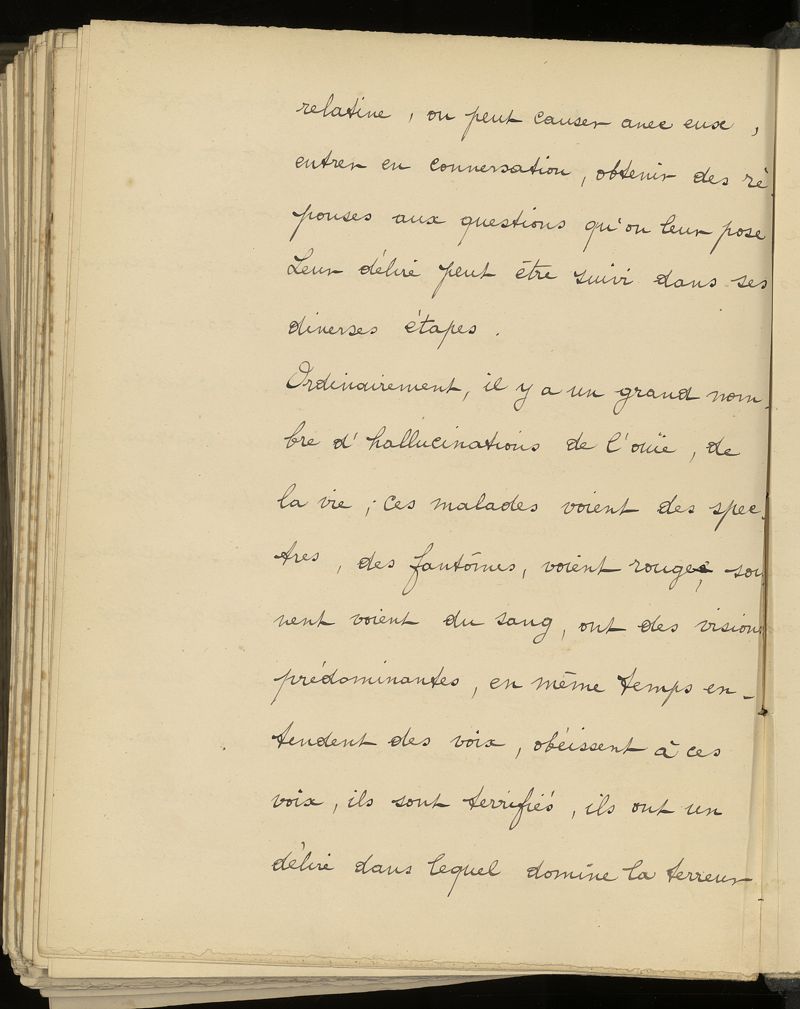 relative, on peut causer avec eux,
entrer en conversation, obtenir des ré-
ponses aux questions qu'on leur pose
Leur délire peut être suivi dans ses
diverses étapes.
Ordinairement, il y a un grand nom-
bre d'hallucinations de l'ouïe, de
la vie; ces malades voient des spec-
tres, des fantômes, voient rouge, sou
vent voient du sang, ont des visions
prédominantes, en même temps en-
tendent des voix, obéissent à ces
voix, ils sont terrifiés, ils ont un
délire dans lequel domine la terreur